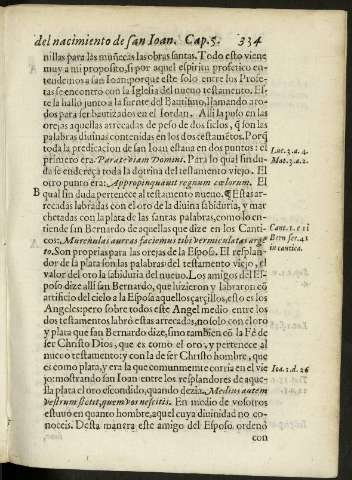 del nacimiento de san Ioan. Cap. 5. 334
nillas para las muñecas las obras santas. Todo esto viene
muy a mi proposito, si por aquel espiritu profetico en-
tendemos a san Ioan: porque este solo entre los Profe-
tas se encontro con la Iglesia del nueuo testamento. Es-
te la hallò junto a la fuente del Bautismo, llamando arro-
dos para ser bautizados en el Iordan. Alli la puso en las
orejas aquellas arrecadas de peso de dos siclos, q̃ son las
palabras diuinas contenidas en los dos testamẽtos. Porq̃
toda la predicacion de san Ioan estaua en dos puntos: el
primero era. Parate viam Domini. Para lo qual sin du-
da se endereça toda la dotrina del testamento viejo. El
otro punto era: Appropinquauit regnum cœlorum. El
B qual sin duda pertenece al testamento nueuo. ¶ Estas ar-
recadas labradas con el oro de la diuina sabiduria, y mar
chetadas con la plata de las santas palabras, como lo en-
tiende san Bernardo de aquellas que dize en los Canti-
cos. Murenulas aureas faciemus tibi vermiculatas argẽ
to. Son proprias para las orejas de la Esposa. El resplan-
dor de la plata son las palabras del testamento viejo, el
valor del oro la sabiduria del nueuo. Los amigos del Es-
poso dize alli san Bernardo, que hizieron y labraron cõ
artificio del cielo a la Esposa aquellos çarçillos, esto es los
Angeles: pero sobre todos este Angel medio entre los
dos testamentos labrò estas arrecadas, no solo con el oro
y plata que san Bernardo dize, sino tambien cõ la Fè de
ser Christo Dios, que es como el oro, y pertenece al
nueuo testamento: y con la de ser Christo hombre, que
es como plata, y era la que comunmente corria en el vie
jo: mostrando san Ioan entre los resplandores de aque-
lla plata el oro escondido, quando dezia. Medius autem
vestrum stetit, quem vos nescitis. En medio de vosotros
estuuo en quanto hombre, aquel cuya diuinidad no co-
noceis. Desta manera este amigo del Esposo ordenò
con
Luc. 3. a. 4.
Mat. 3. a. 2.
Cant. 1. c. 11
Bern. ser. 41
in cantica.
Ioa. 1. d. 26